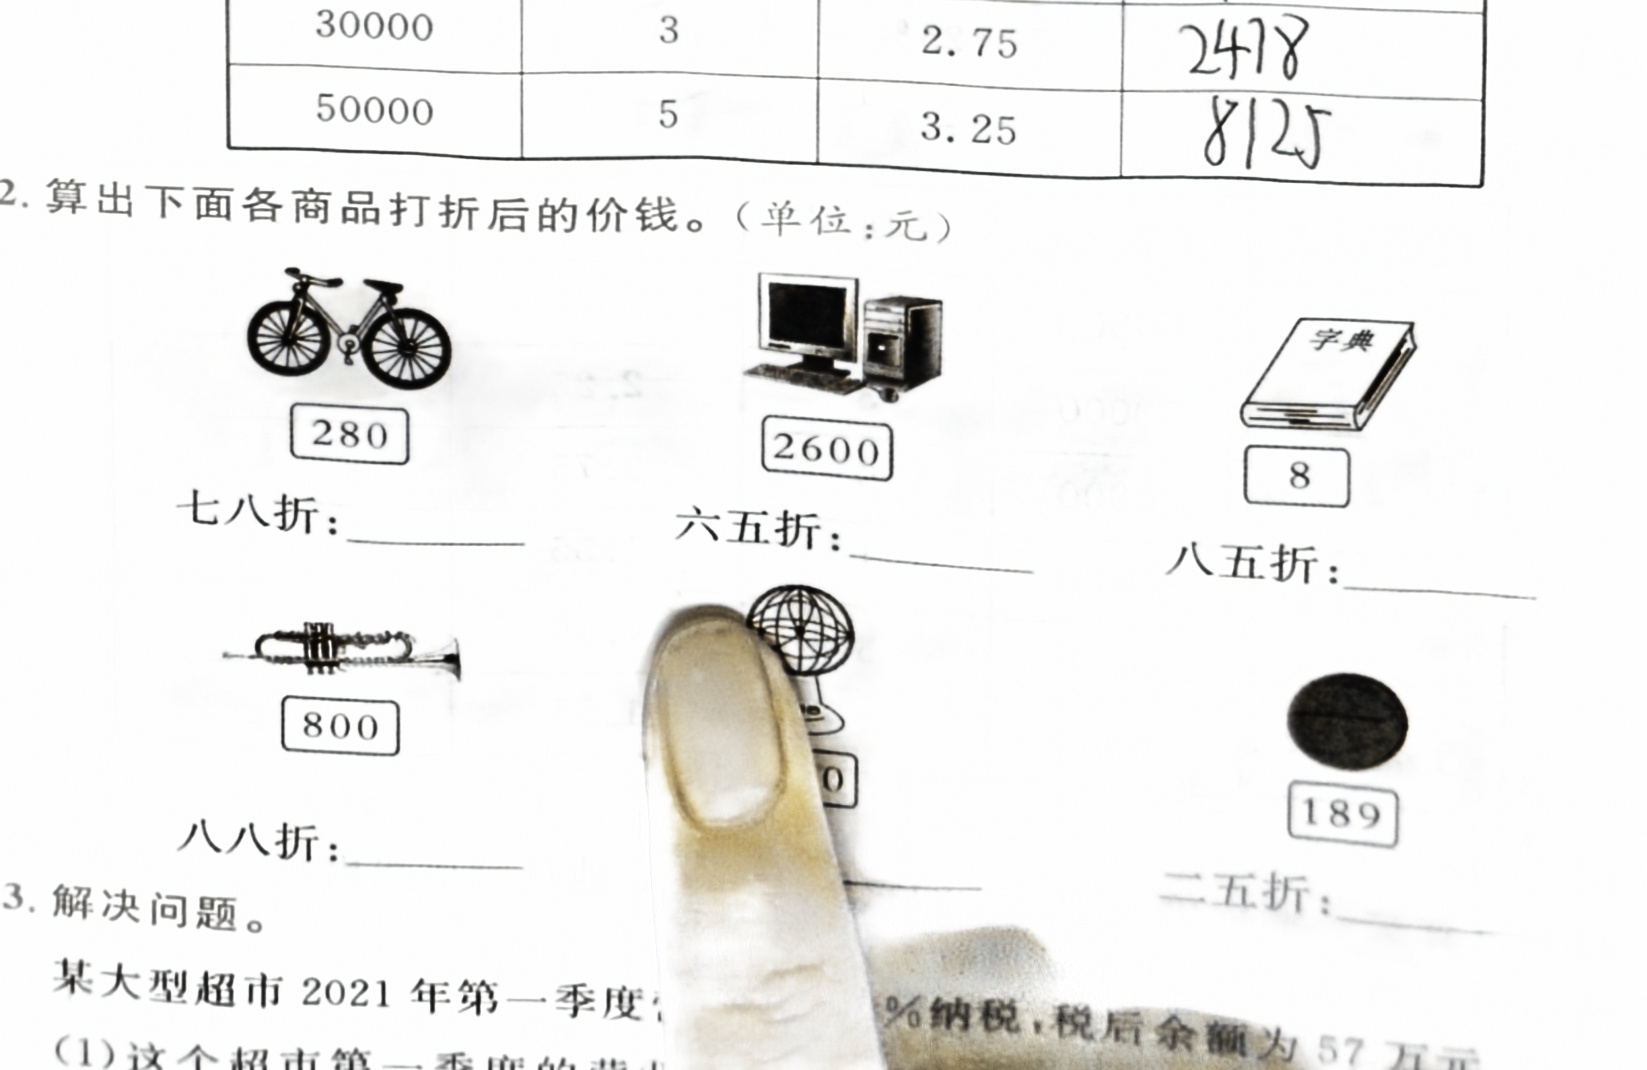 30000 3 2.75 2478
50000 5 3.25 8125
2. 算出下面各商品打折后的价钱。(单位:元)
字典
280 2600 8
七八折: 六五折: 八五折:
800 0 189
八八折: 二五折:
3. 解决问题。
某大型超市 2021 年第一季度 %纳税,税后余额为 57 万元
(1)这个超市第一季度的营